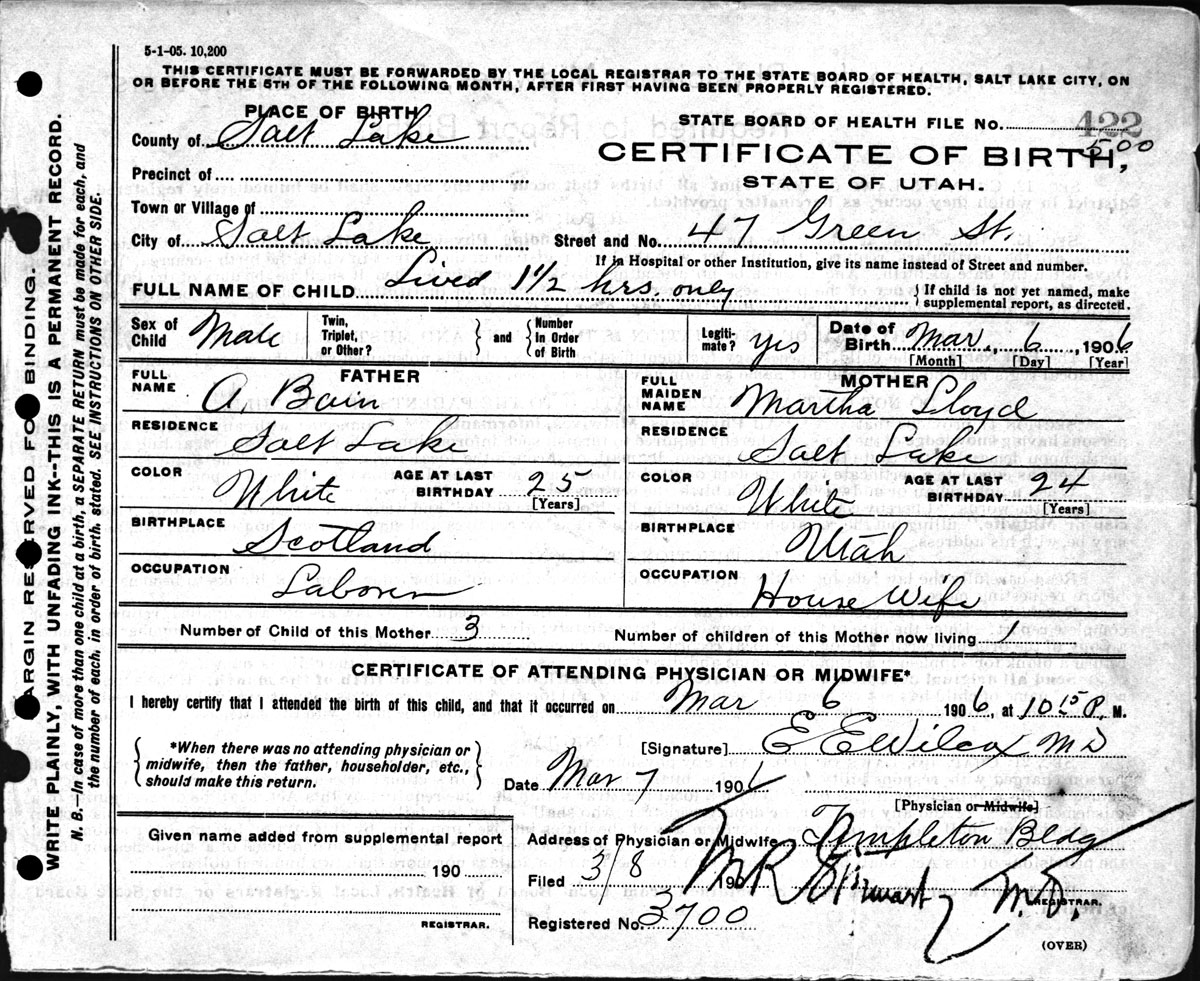 5-1-05. 10,200
THIS CERTIFICATE MUST BE FORWARDED BY THE LOCAL REGISTRAR TO THE STATE BOARD OF HEALTH, SALT LAKE CITY, ON
OR BEFORE THE 5TH OF THE FOLLOWING MONTH, AFTER FIRST HAVING BEEN PROPERLY REGISTERED.
PLACE OF BIRTH
STATE BOARD OF HEALTH FILE No. 422
500
County of Salt Lake
CERTIFICATE OF BIRTH,
Precinct of
STATE OF UTAH.
Town or Village of
City of Salt Lake Street and No. 47 Green St.
If in Hospital or other Institution, give its name instead of Street and number.
FULL NAME OF CHILD Lived 1 1/2 hrs. only { If child is not yet named, make supplemental report, as directed.
Sex of Child Male Twin, Triplet, or Other? } and { Number In Order of Birth Legiti- mate? yes Date of Birth Mar. 6, 1906
[Month] [Day] [Year]
FATHER
FULL NAME A. Bain
RESIDENCE Salt Lake
COLOR White AGE AT LAST BIRTHDAY 25 [Years]
BIRTHPLACE Scotland
OCCUPATION Laborer
MOTHER
FULL MAIDEN NAME Martha Lloyd
RESIDENCE Salt Lake
COLOR White AGE AT LAST BIRTHDAY 24 [Years]
BIRTHPLACE Utah
OCCUPATION House Wife
Number of Child of this Mother 3 Number of children of this Mother now living 1
CERTIFICATE OF ATTENDING PHYSICIAN OR MIDWIFE*
I hereby certify that I attended the birth of this child, and that it occurred on Mar 6 1906, at 10 15 P. M.
{ *When there was no attending physician or midwife, then the father, householder, etc., should make this return. }
[Signature] E E Wilcox MD
Date Mar 7 1906
[Physician or Midwife]
Given name added from supplemental report
190
REGISTRAR.
Address of Physician or Midwife Templeton Bldg
Filed 3/8 190
M R Stewart M.D.
REGISTRAR.
Registered No. 3700
(OVER)
MARGIN RESERVED FOR BINDING.
WRITE PLAINLY, WITH UNFADING INK--THIS IS A PERMANENT RECORD.
N. B.—In case of more than one child at a birth, a SEPARATE RETURN must be made for each, and
the number of each, in order of birth, stated. SEE INSTRUCTIONS ON OTHER SIDE.